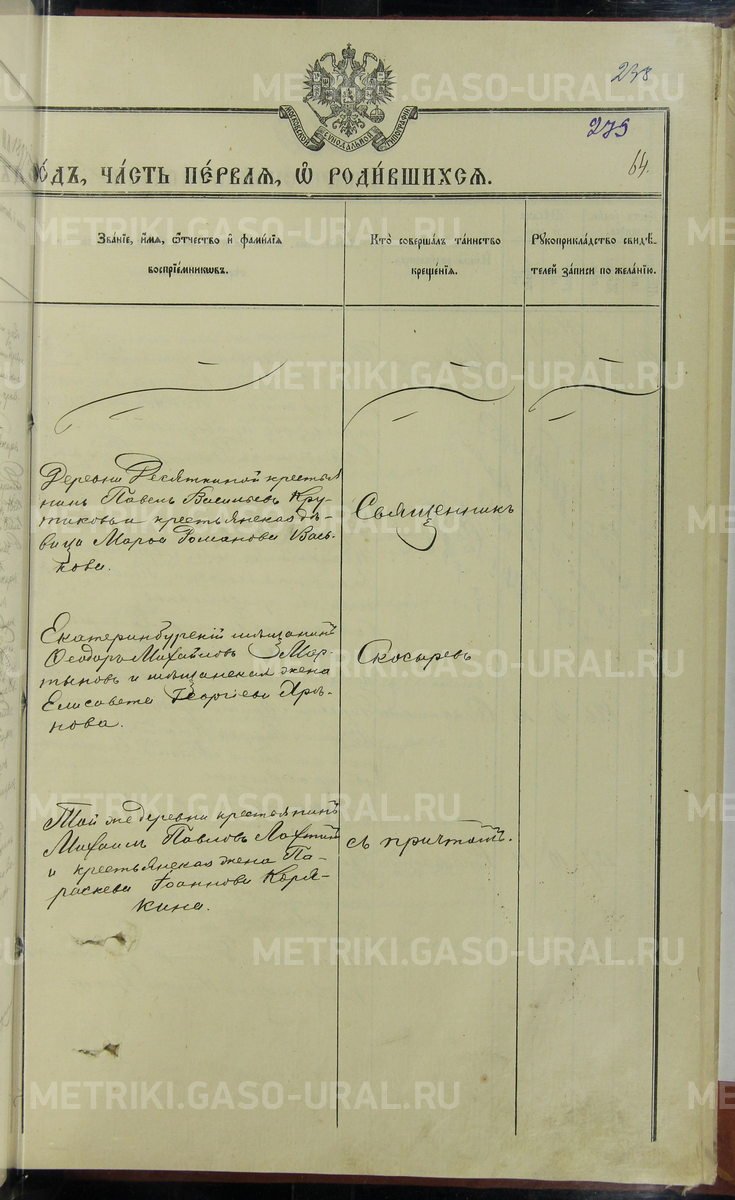 238
239
64.
МОСКОВСКОЙ СѴНОДАЛЬНОЙ ТИПОГРАФІИ
ЧА́СТЬ ПЕ́РВАѦ, Ѽ РОДИ́ВШИХСѦ.
Зва́нїе, и҆́мѧ, ѻ҆́тчество и҆ фамі́лїѧ
воспрїе́мникѡвъ.
Кто̀ соверша́лъ та́инство
креще́нїѧ.
Рꙋкоприкла́дство свидѣ́-
телей за́писи по жела́нїю.
Деревни Десяткиной крестья
нинъ Павелъ Васильевъ Кру-
тиковъ и крестьянская дѣ-
вица Марѳа Романова Вась-
кова.
Священникъ
Екатеринбургскій мѣщанинъ
Ѳеодоръ Михайловъ Мар-
тыновъ и мѣщанская жена
Елисавета Георгіева
нова.
Скосыревъ
Той же деревни крестьянинъ
Михаилъ Павловъ Лахтинъ
и крестьянская жена Па-
раскева Іоаннова Коря-
кина.
съ причтомъ.
METRIKI.GASO-URAL.RU